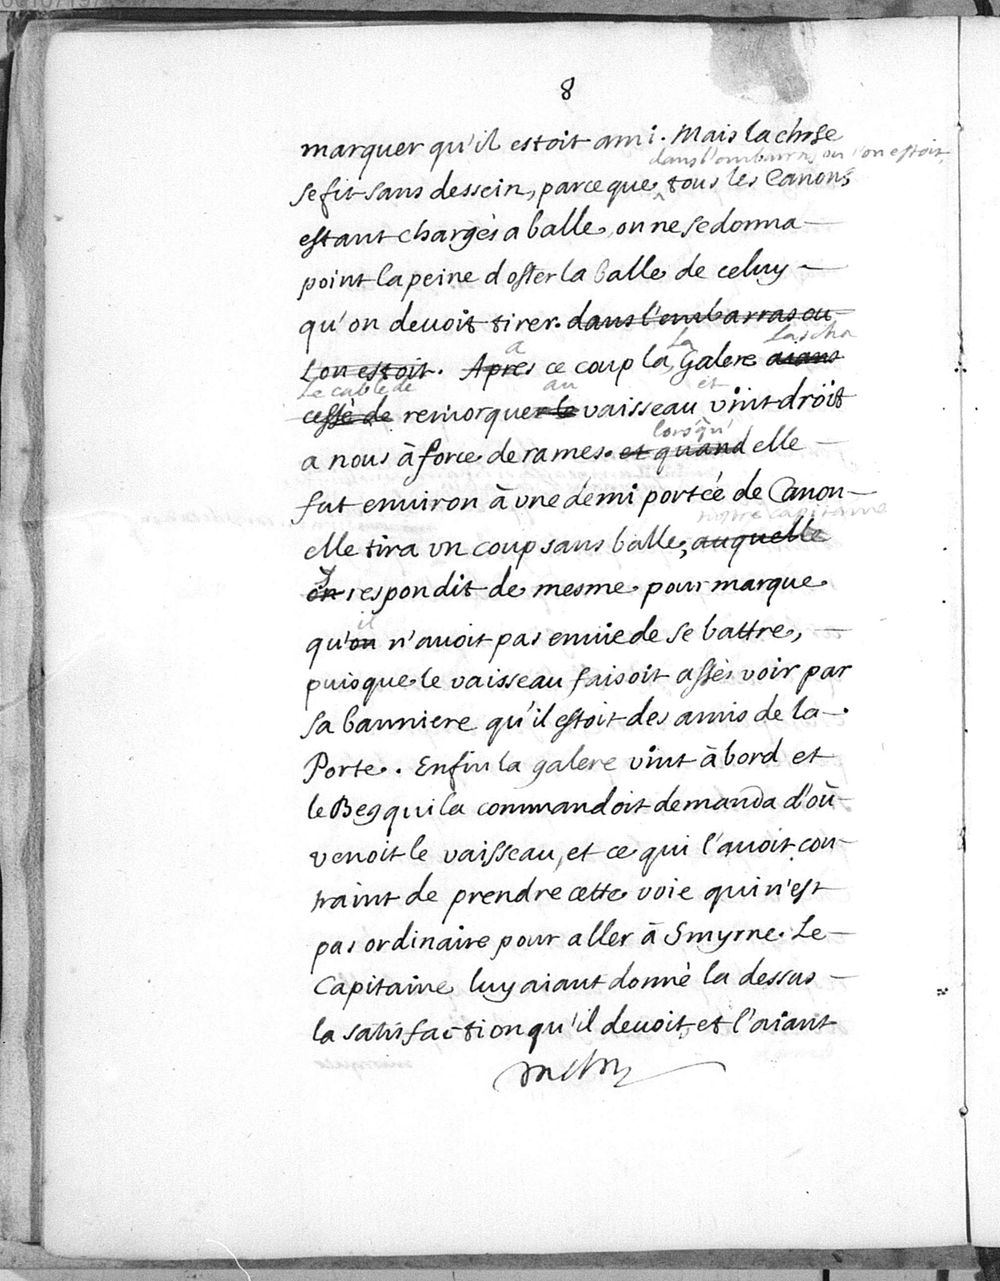 8
marquer qu'il estoit ami. Mais la chose
dans l'embarras ou l'on estoit,
se fit sans dessein, parce que tous les Canons
estant chargés a balle, on ne se donna
point la peine d'oster la balle de celuy
qu'on devoit tirer. dans l'embarras ou
a La Lascha
l'on estoit. Apres ce coup la, Galere aiant
le cable de au et
cessé de remorquer le vaisseau vint droit
lors qu'
a nous à force de rames. et quand elle
fut environ à une demi portée de Canon
nostre capitaine
elle tira un coup sans balle, auquelle
y
on respondit de mesme pour marque
il
qu'on n'avoit pas envie de se battre,
puisque le vaisseau faisoit assés voir par
sa banniere qu'il estoit des amis de la
Porte. Enfin la galere vint à bord et
le Beg qui la commandoit demanda d'où
venoit le vaisseau, et ce qui l'avoit con-
traint de prendre cette voie qui n'est
pas ordinaire pour aller à Smyrne. Le
Capitaine luy aiant donné la dessus
la satisfaction qu'il devoit, et l'aiant